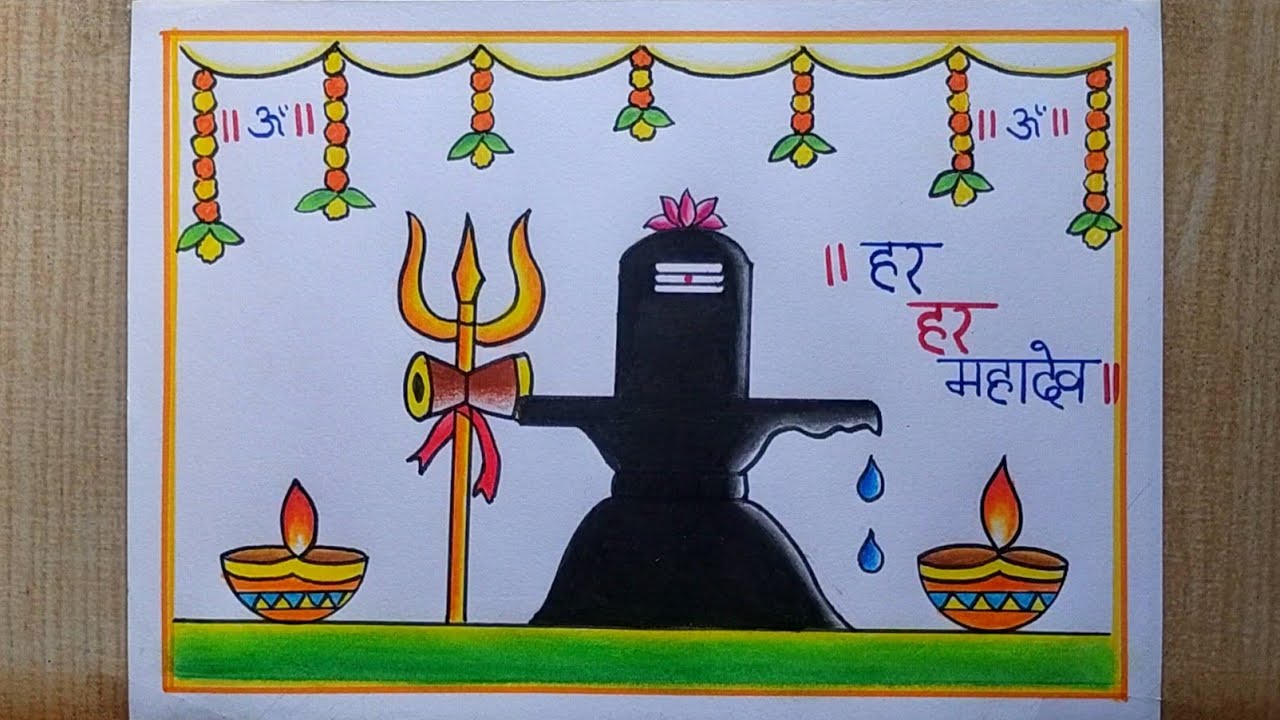 ॥ ॐ ॥
॥ ॐ ॥
॥ हर
हर
महादेव ॥